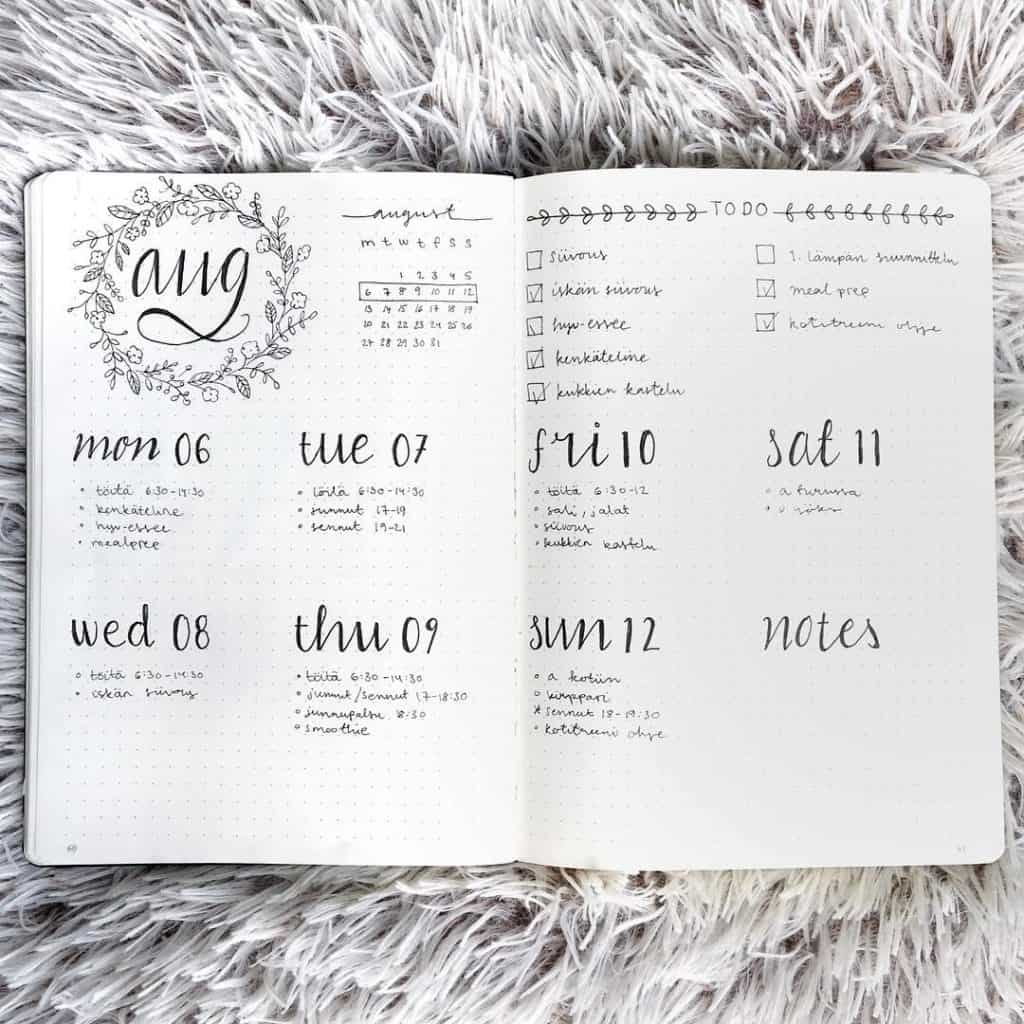 aug
august
m t w t f s s
1 2 3 4 5
6 7 8 9 10 11 12
13 14 15 16 17 18 19
20 21 22 23 24 25 26
27 28 29 30 31
mon 06
töitä 6:30-14:30
kenkäteline
hyv-essee
mealprep
tue 07
töitä 6:30-14:30
junnut 17-19
sennut 19-21
wed 08
töitä 6:30-14:30
iskän siivous
thu 09
töitä 6:30-14:30
junnut/sennut 17-18:30
junnupalsu 18:30
smoothie
TODO
siivous
iskän siivous
hyv-essee
kenkäteline
kukkien kastelu
1. lämpän suunnittelu
meal prep
kotitreeni ohje
fri 10
töitä 6:30-12
sali, jalat
siivous
kukkien kastelu
sat 11
a turussa
sun 12
a kotiin
kirppari
sennut 18-19:30
kotitreeni ohje
notes